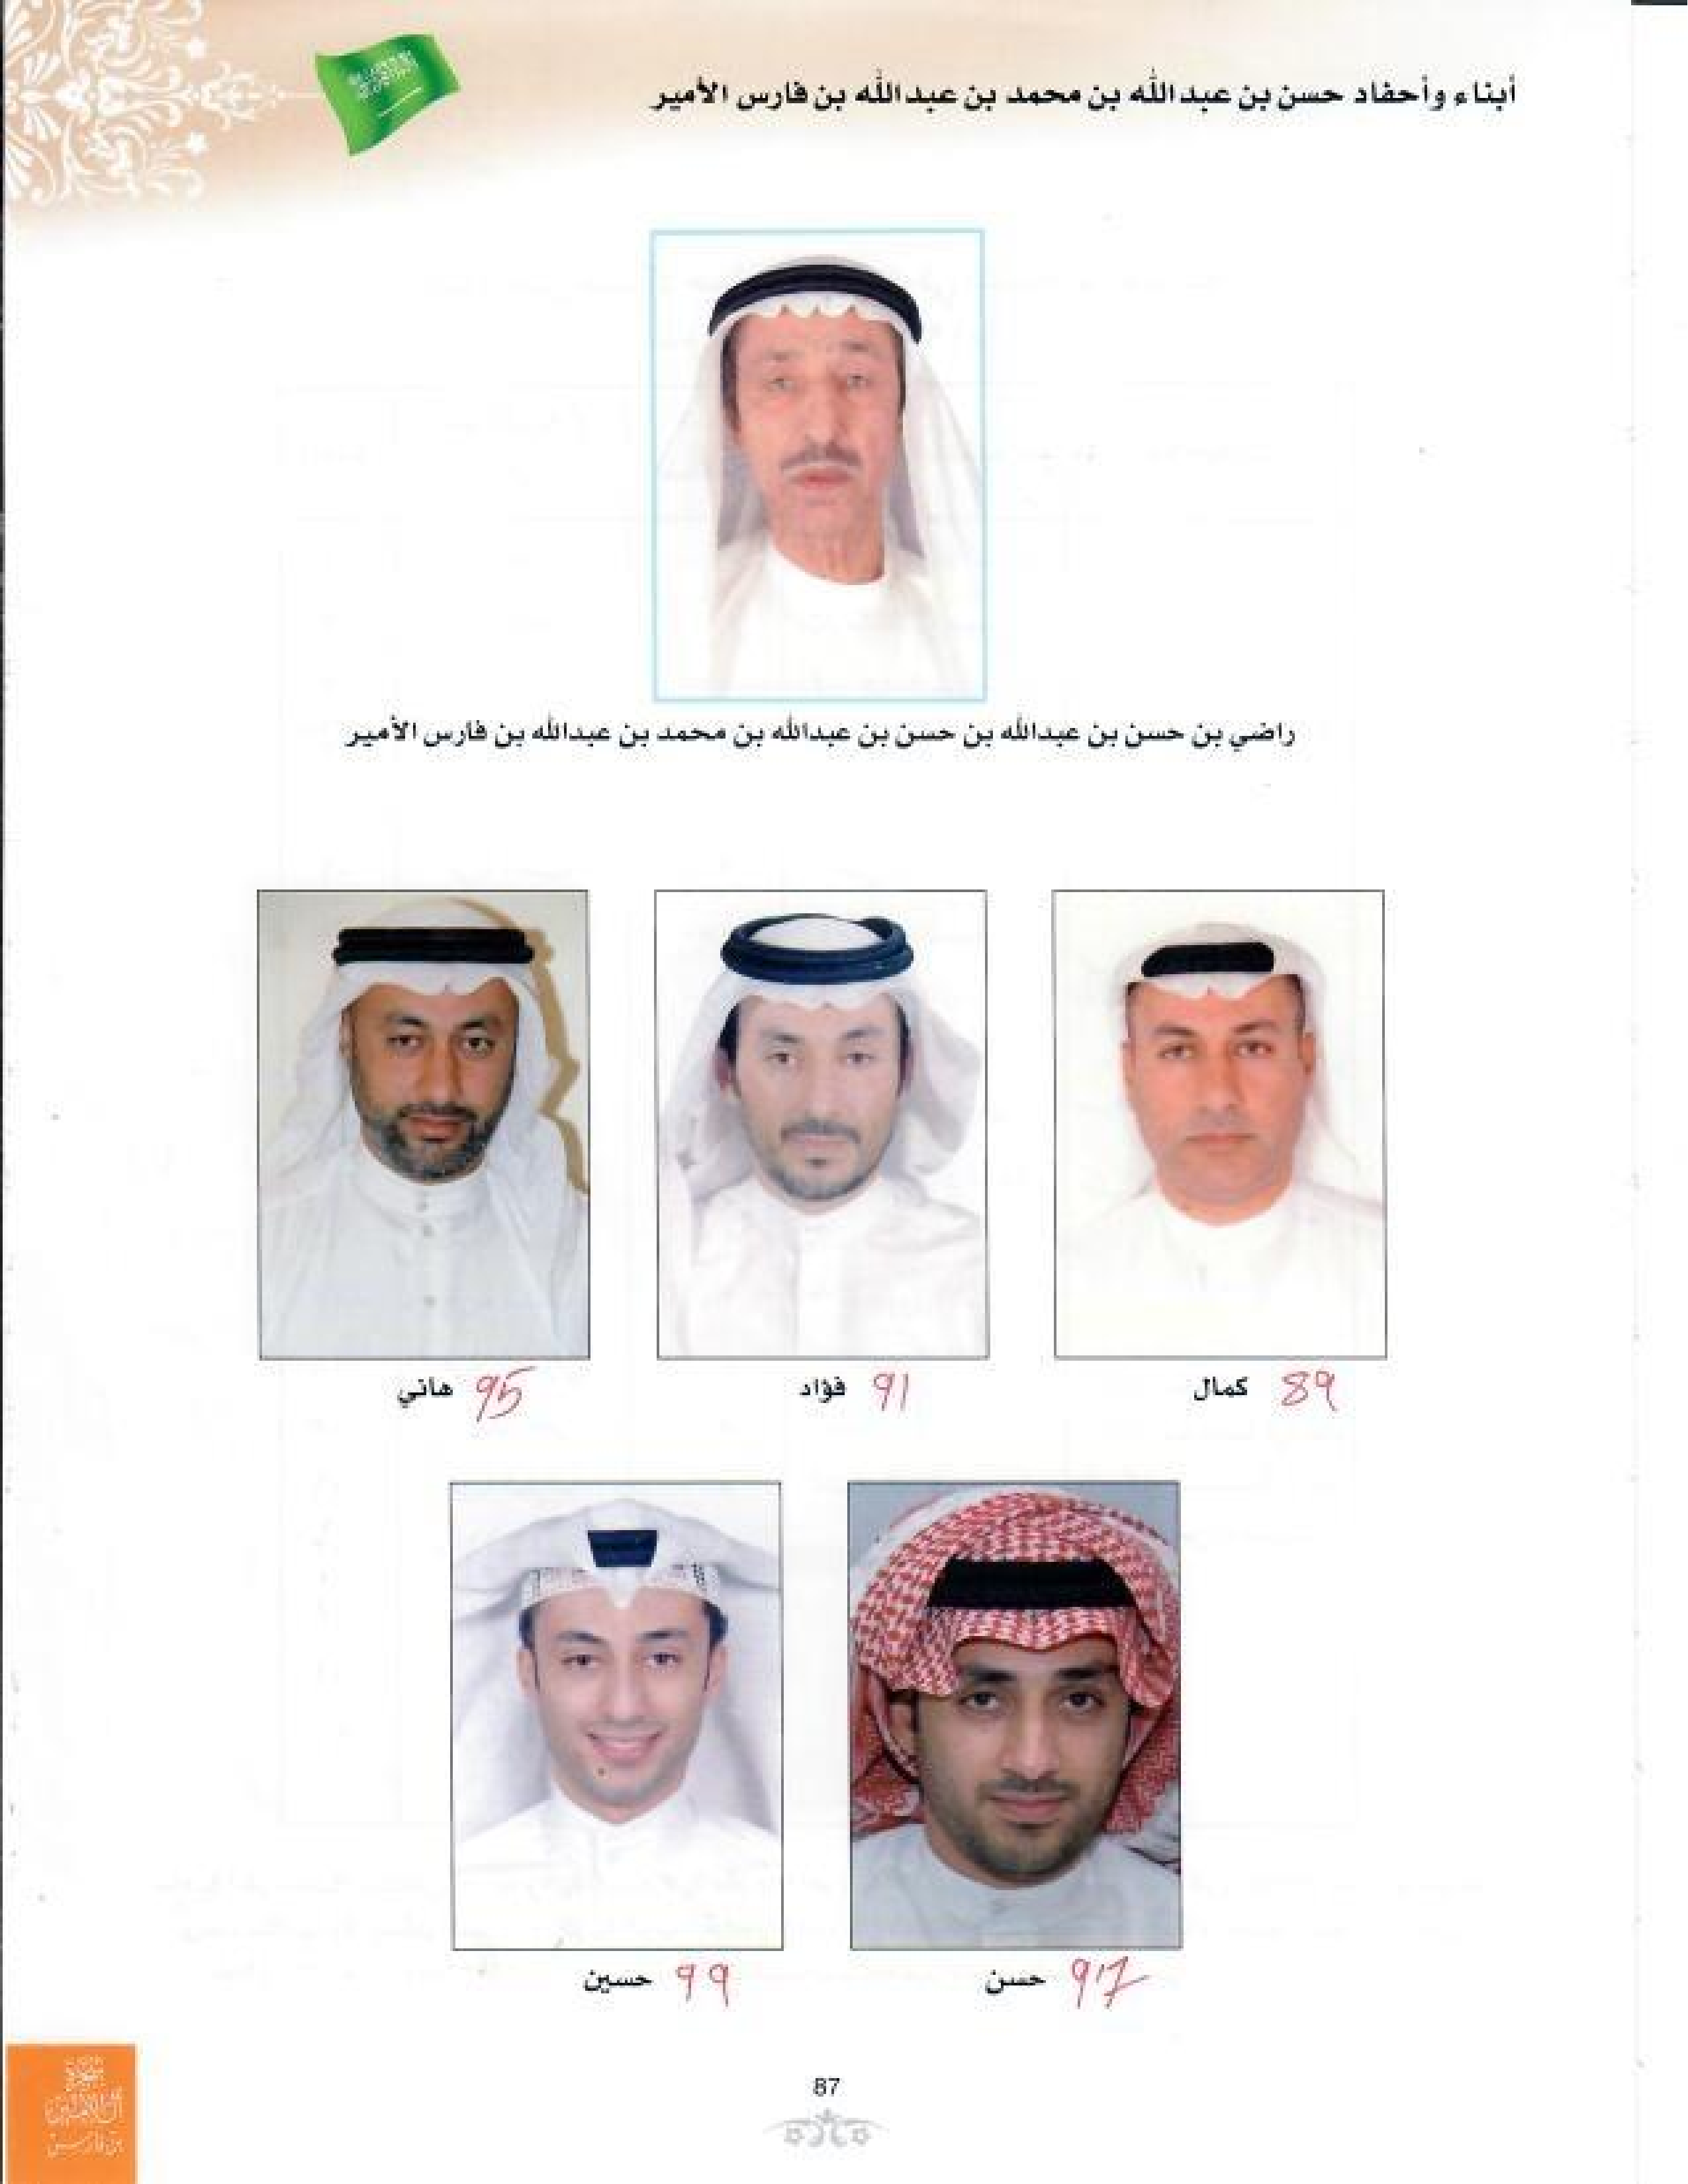 أبناء وأحفاد حسن بن عبدالله بن محمد بن عبدالله بن فارس الأمير
راضي بن حسن بن عبدالله بن حسن بن عبدالله بن محمد بن عبدالله بن فارس الأمير
كمال 89
فؤاد 91
هاني 95
حسن 97
حسين 99
87
شجرة
آل الأمير
بن فارس